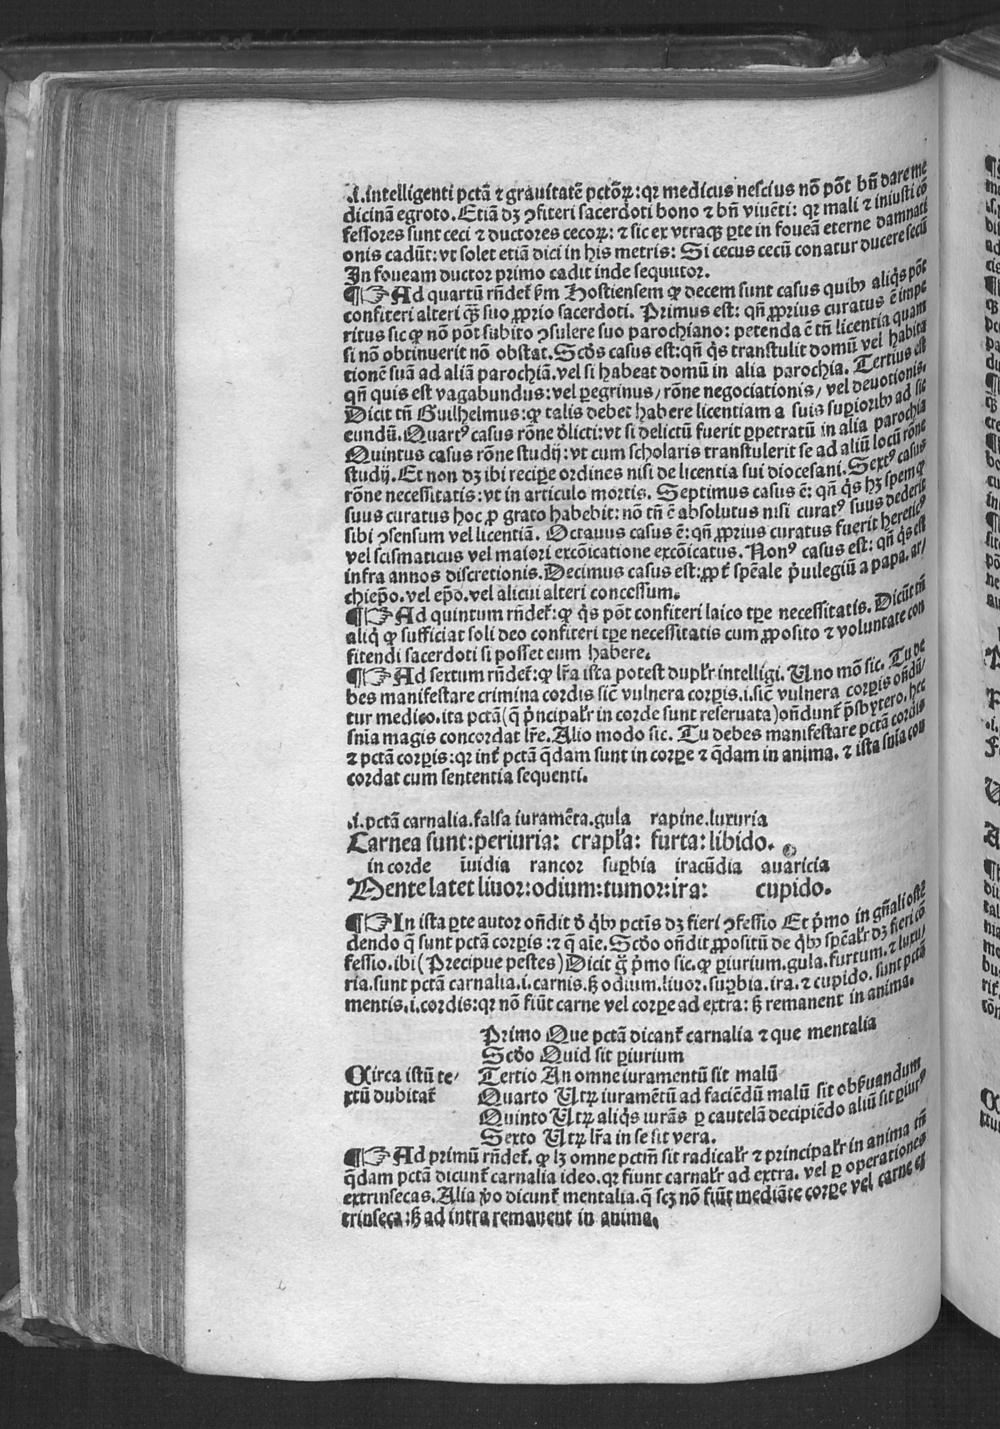 .i.intelligenti pctā ⁊ grauitatē pctōꝝ: qꝛ medicus nescius nō pōt bn̄ dare me
dicinā egroto. Etiā dꝫ ꝯfiteri sacerdoti bono ⁊ bn̄ viuēti: qꝛ mali ⁊ iniusti cō
fessores sunt ceci ⁊ ductores cecoꝝ: ⁊ sic ex vtraqꝫ ꝑte in foueā eterne damnati
onis cadūt: vt solet etiā dici in his metris: Si cecus cecū conatur ducere secū
In foueam ductor primo cadit inde sequutor.
¶☞Ad quartū rn̄deť ẜm Hostiensem ꝙ decem sunt casus quibꝰ aliq̇s pōt
confiteri alteri qꝫ̄ suo ꝓprio sacerdoti. Primus est: qn̄ ꝓprius curatus ē impe
ritus sic ꝙ nō pōt subito ꝯsulere suo parochiano: petenda ē tn̄ licentia quam
si nō obtinuerit nō obstat. Scďs casus est: qn̄ q̇s transtulit domū vel habita
tionē suā ad aliā parochiā. vel si habeat domū in alia parochia. Tertius est
qn̄ quis est vagabundus: vel ꝑegrinus/ rōne negociationis/ vel deuotionis.
Dicit tn̄ Guilhelmus: ꝙ talis debet habere licentiam a suis suꝑioribꝰ ad sic
eundū. Quartꝰ casus rōne ďlicti: vt si delictū fuerit ꝑpetratū in alia parochia
Quintus casus rōne studij: vt cum scholaris transtulerit se ad aliū locū rōne
studij. Et non dꝫ ibi reciꝑe ordines nisi de licentia sui diocesani. Sextꝰ casus
rōne necessitatis: vt in articulo mortis. Septimus casus ē: qn̄ q̇s hꝫ spem ꝙ
suus curatus hoc ꝓ grato habebit: nō tn̄ ē absolutus nisi curatꝰ suus dederit
sibi ꝯsensum vel licentiā. Octauus casus ē: qn̄ ꝓprius curatus fuerit hereticꝰ
vel scismaticus vel maiori excōicatione excōicatus. Nonꝰ casus est: qn̄ q̇s est
infra annos discretionis. Decimus casus est: ꝓpť spēale p̉uilegiū a papa. ar/
chiep̄o. vel ep̄o. vel alicui alteri concessum.
¶☞Ad quintum rn̄deť: ꝙ q̇s pōt confiteri laico tꝑe necessitatis. Dicūt tn̄
aliq̇ ꝙ sufficiat soli deo confiteri tꝑe necessitatis cum ꝓposito ⁊ voluntate con
fitendi sacerdoti si posset eum habere.
¶☞Ad sextum rn̄deť: ꝙ lr̄a ista potest dupl'r intelligi. Uno mō sic. Tu de
bes manifestare crimina cordis sicē vulnera corꝑis. i. sicē vulnera corꝑis on̄dū/
tur medico. ita pctā (q̄ p̉ncipal'r in corde sunt reseruata) on̄dunť p̄sbytero. hec
sn̄ia magis concordat lr̄e. Alio modo sic. Tu debes manifestare pctā cordis
⁊ pctā corꝑis: qꝛ inť pctā q̄dam sunt in corꝑe ⁊ q̄dam in anima. ⁊ ista sn̄ia con
cordat cum sententia sequenti.
.i. pctā carnalia. falsa iuramēta. gula rapine. luxuria
Carnea sunt: periuria: crapl'a: furta: libido.
in corde īuidia rancor suꝑbia iracūdia auaricia
Mente latet liuor: odium: tumor: ira: cupido.
¶☞In ista ꝑte autor on̄dit ď q̇bꝰ pctīs dꝫ fieri ꝯfessio Et p̉mo in gn̄ali ostē
dendo q̄ sunt pctā corꝑis: ⁊ q̄ aīe. Scďo on̄dit ꝓpositū de q̇bꝰ spēal'r dꝫ fieri cō
fessio. ibi (Precipue pestes) Dicit g̊ p̉mo sic. ꝙ ꝑiurium. gula. furtum. ⁊ luxu/
ria. sunt pctā carnalia. i. carnis. ꝫ odium. liuor. suꝑbia. ira. ⁊ cupido. sunt pctā
mentis. i. cordis: qꝛ nō fiūt carne vel corꝑe ad extra: ꝫ remanent in anima.
Primo Que pctā dicanť carnalia ⁊ que mentalia
Scďo Quid sit ꝑiurium
Circa istū te/ Tertio An omne iuramentū sit malū
xtū dubitať Quarto Utꝝ iuramētū ad faciēdū malū sit obẜuandum
Quinto Utꝝ aliq̇s iurās ꝑ cautelā decipiēdo aliū sit ꝑiurꝰ
Sexto Utꝝ lr̄a in se sit vera.
¶☞Ad primū rn̄deť. ꝙ lꝫ omne pctm̄ sit radical'r ⁊ principal'r in anima tn̄
q̄dam pctā dicunť carnalia ideo. qꝛ fiunt carnal'r ad extra. vel ꝑ operationes
extrinsecas. Alia v̊o dicunť mentalia. q̄ scꝫ nō fiūt mediāte corꝑe vel carne ex
trinseca: ꝫ ad intra remanent in anima.